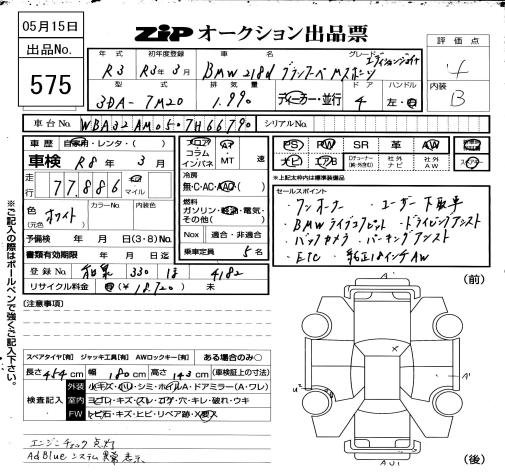 05月15日
ZiP オークション出品票
出品No. 575
年式 初年度登録 車名 グレード
R3 R3年3月 BMW 218d グランクーペ Mスポーツ エディションジョイ+
型式 排気量 ドア ハンドル
3DA-7M20 1,990 ディーラー・並行 4 左・右
評価点 4
内装 B
車台No. WBA32AM0507H66790 シリアルNo.
車歴 自家用・レンタ・( )
車検 R8年3月
走行 77,886 km マイル
色 (元色) ホワイト カラーNo. 内装色
予備検 年 月 日(3・8)No.
書類有効期限 年 月 日迄
登録No. 和泉 330 4182
リサイクル料金 有(¥18,720) 未
フロア コラム インパネ AT MT 速
冷房 無・C・AC・AAC
燃料 ガソリン・軽油・電気・その他( )
Nox 適合・非適合
乗車定員 5名
PS PW SR 革 AW
ナビ エアB Dチューナー(純・外含む) 社外ナビ 社外AW
*上記太枠は標準装備品
セールスポイント
・ワンオーナー ・ユーザー下取車
・BMWライブコックピット ・ドライビングアシスト
・バックカメラ ・パーキングアシスト
・ETC ・純正18インチAW
(注意事項)
スペアタイヤ[有] ジャッキ工具[有] AWロックキー[有] ある場合のみ○
長さ 454cm 幅 180cm 高さ 143cm (車検証上の寸法)
検査記入
外装 小キズ・小凹・シミ・ホイルA・ドアミラー(A・ワレ)
室内 ヨゴレ・キズ・スレ・コゲ・穴・キレ・破れ・ウキ
FW トビ石・キズ・ヒビ・リペア跡・X(要入)
エンジンチェック点灯
AdBlueシステム異常表示
※ご記入の際はボールペンで強くご記入下さい。
(前)
A'
X
A'
(後)